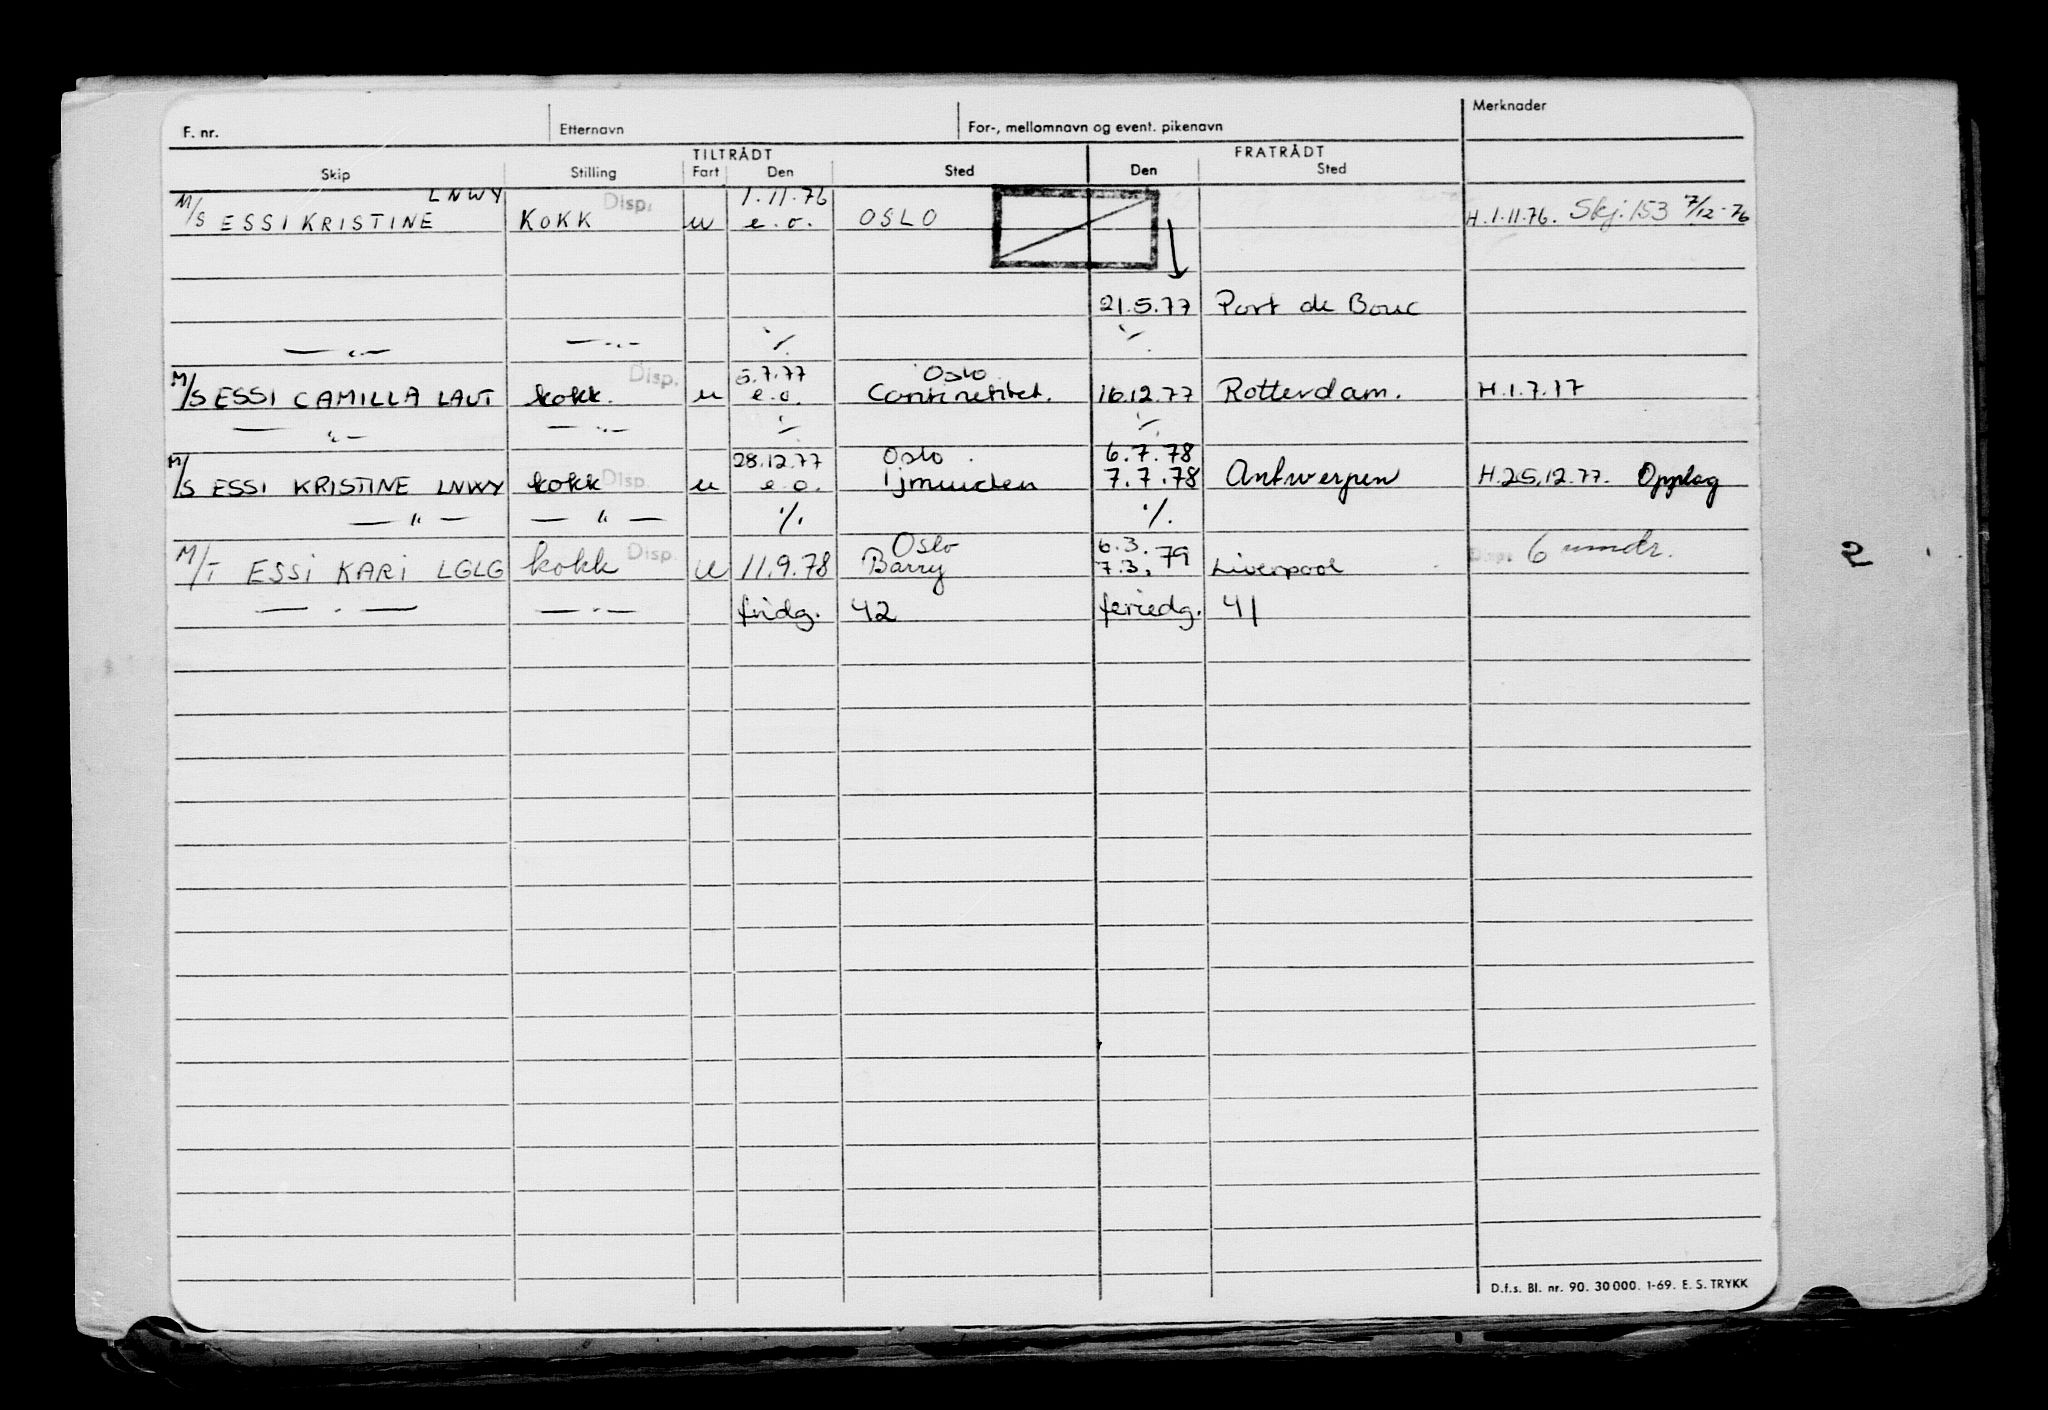 F. nr. Etternavn For-, mellomnavn og event. pikenavn Merknader
TILTRÅDT FRATRÅDT
Skip Stilling Fart Den Sted Den Sted
LNWY Disp. 1.11.76
M/S ESSI KRISTINE KOKK u e.o. OSLO H.1.11.76. Skj.153 7/12-76
21.5.77 Port de Bouc
— „ — — „ — ./. ./.
Disp. 5.7.77 Oslo
M/S ESSI CAMILLA LAUT kokk. u e.o. 16.12.77 Rotterdam. H.1.7.77
— „ — — „ — ./. ./.
28.12.77 Oslo 6.7.78
M/S ESSI KRISTINE LNWY kokk Disp. u e.o. Ijmuiden 7.7.78 Antwerpen H.25.12.77. Opplag
— " — — " — ./. ./.
Disp. Oslo 6.3.79 Disp. 6 mndr.
M/T ESSI KARI LGLG kokk u 11.9.78 Barry 7.3.79 Liverpool
— " — — " — fridg. 42 feriedg. 41
2
D.f.s. Bl. nr. 90. 30 000. 1-69. E. S. TRYKK